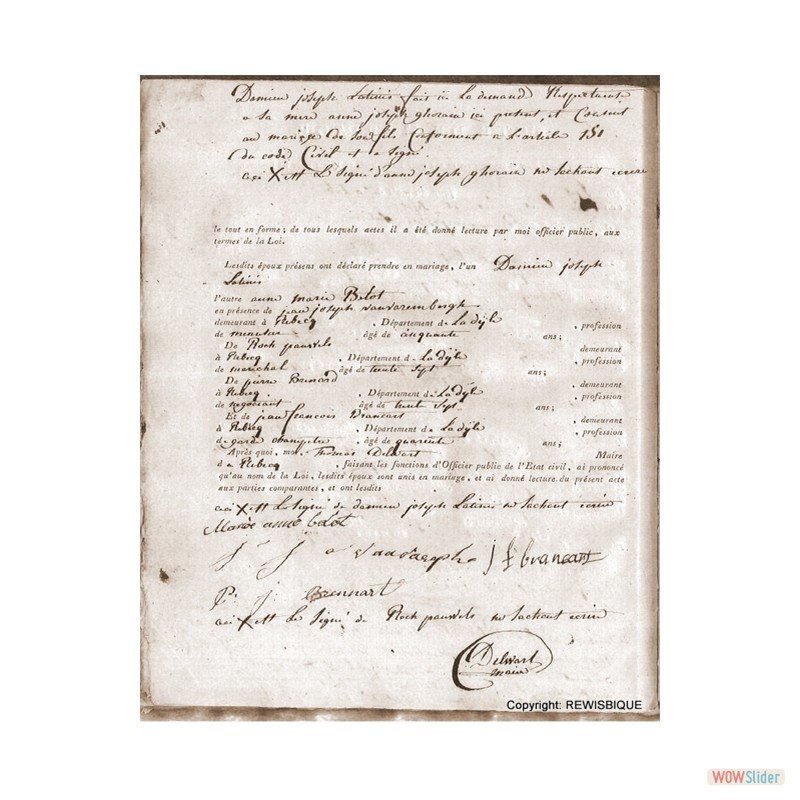 Damien joseph Latinis fait ici la demand Respectueuse
a sa mere anne joseph ghorain ici présent, et Consent
au mariage de son fils Conforment a L'article 151
du code Civil et a signé.
ceci X est Le signé d'anne joseph ghorain ne sachant ecrire
le tout en forme; de tous lesquels actes il a été donné lecture par moi officier public, aux
termes de la Loi.
Lesdits époux présens ont déclaré prendre en mariage, l'un Damien joseph
Latinis
l'autre anne marie Belot
en présence de jean joseph vanvarembergh
demeurant à Rebecq , Département d e La dÿle , profession
de menusier âgé de cinquante ans;
De Rock pauwels demeurant
à Rebecq , Département d e La dÿle , profession
de marechal âgé de trente sept ans;
De pierre Brenard demeurant
à Rebecq , Département d e La dÿle , profession
de negociant âgé de trente sept ans;
Et de jean françois Brancart demeurant
à Rebecq , Département d e La dÿle , profession
de garde champetre âgé de quarente ans;
Après quoi, moi, Thomas Delwart Maire
d e Rebecq , faisant les fonctions d'Officier public de l'Etat civil, ai prononcé
qu'au nom de la Loi, lesdits époux sont unis en mariage, et ai donné lecture du présent acte
aux parties comparantes, et ont lesdits
ceci X est Le signé de damien joseph Latinis ne sachant ecrire
Marie anne belot
j f brancart
P. j. Brennart
ceci X est Le signé de Rock pauwels ne sachant ecrire
Delwart
maire
Copyright: REWISBIQUE
WOWSlider